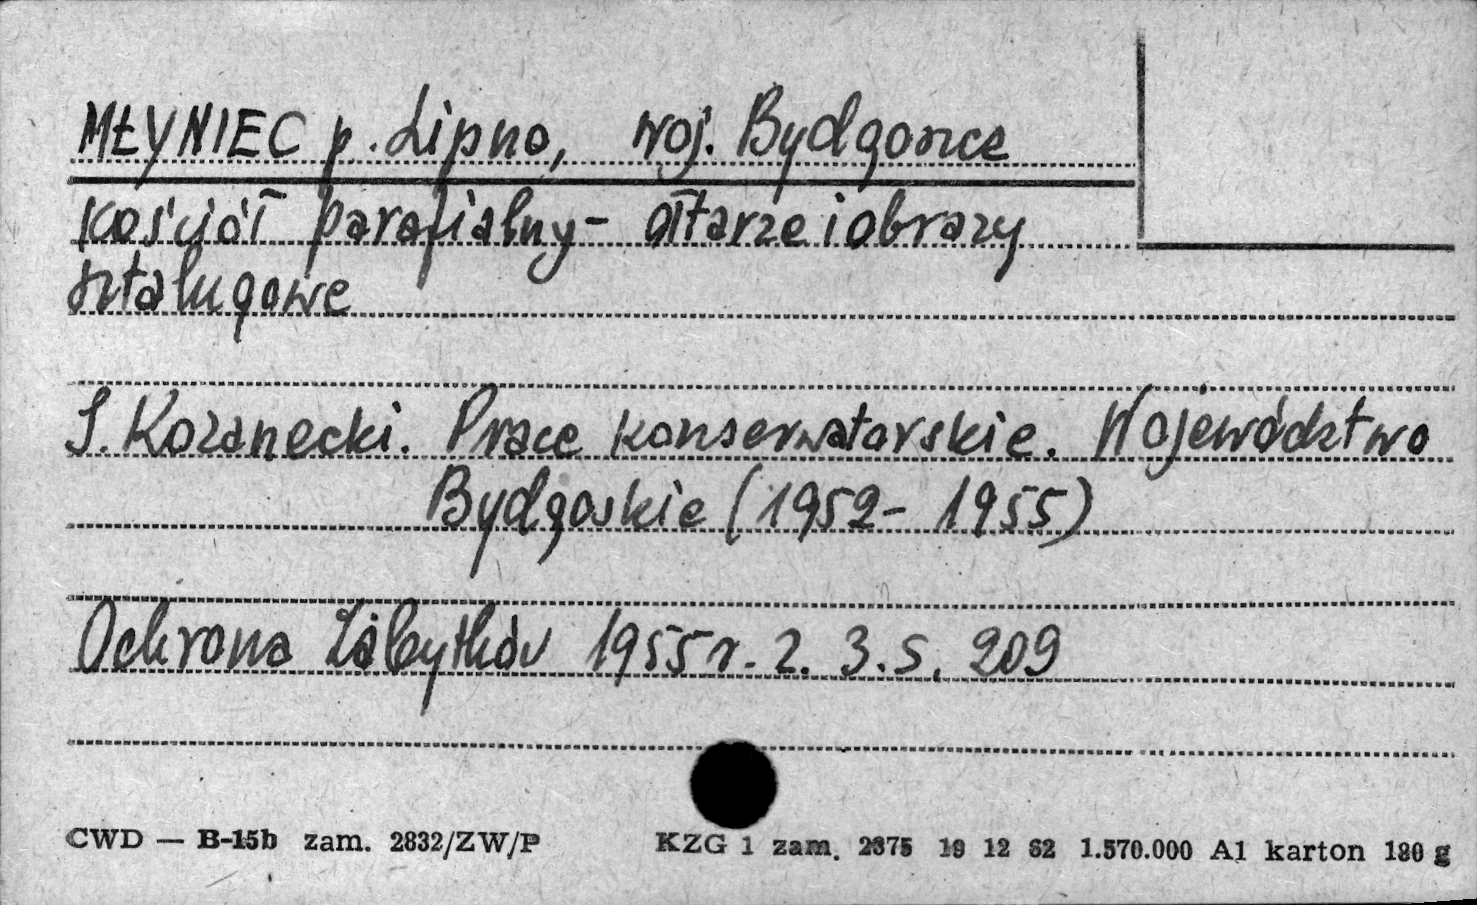 MŁYNIEC p. Lipno, woj. Bydgoszcz
Kościół parafialny - ołtarze i obrazy
sztalugowe
J. Kozanecki. Prace konserwatorskie. Województwo
Bydgoskie (1952 - 1955)
Ochrona Zabytków 1955 r. z. 3. s. 209
CWD — B-15b zam. 2832/ZW/P KZG 1 zam. 2375 19 12 62 1.570.000 A1 karton 180 g